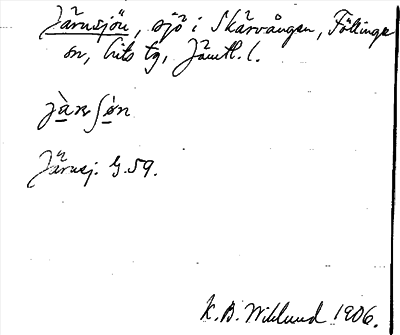 Järnsjön, sjö i Skärvången, Föllinge
sn, Lits tg, Jämtl. l.
jà̱rnʃø̱̀n
Järnsj. G. 59.
K. B. Wiklund 1906.